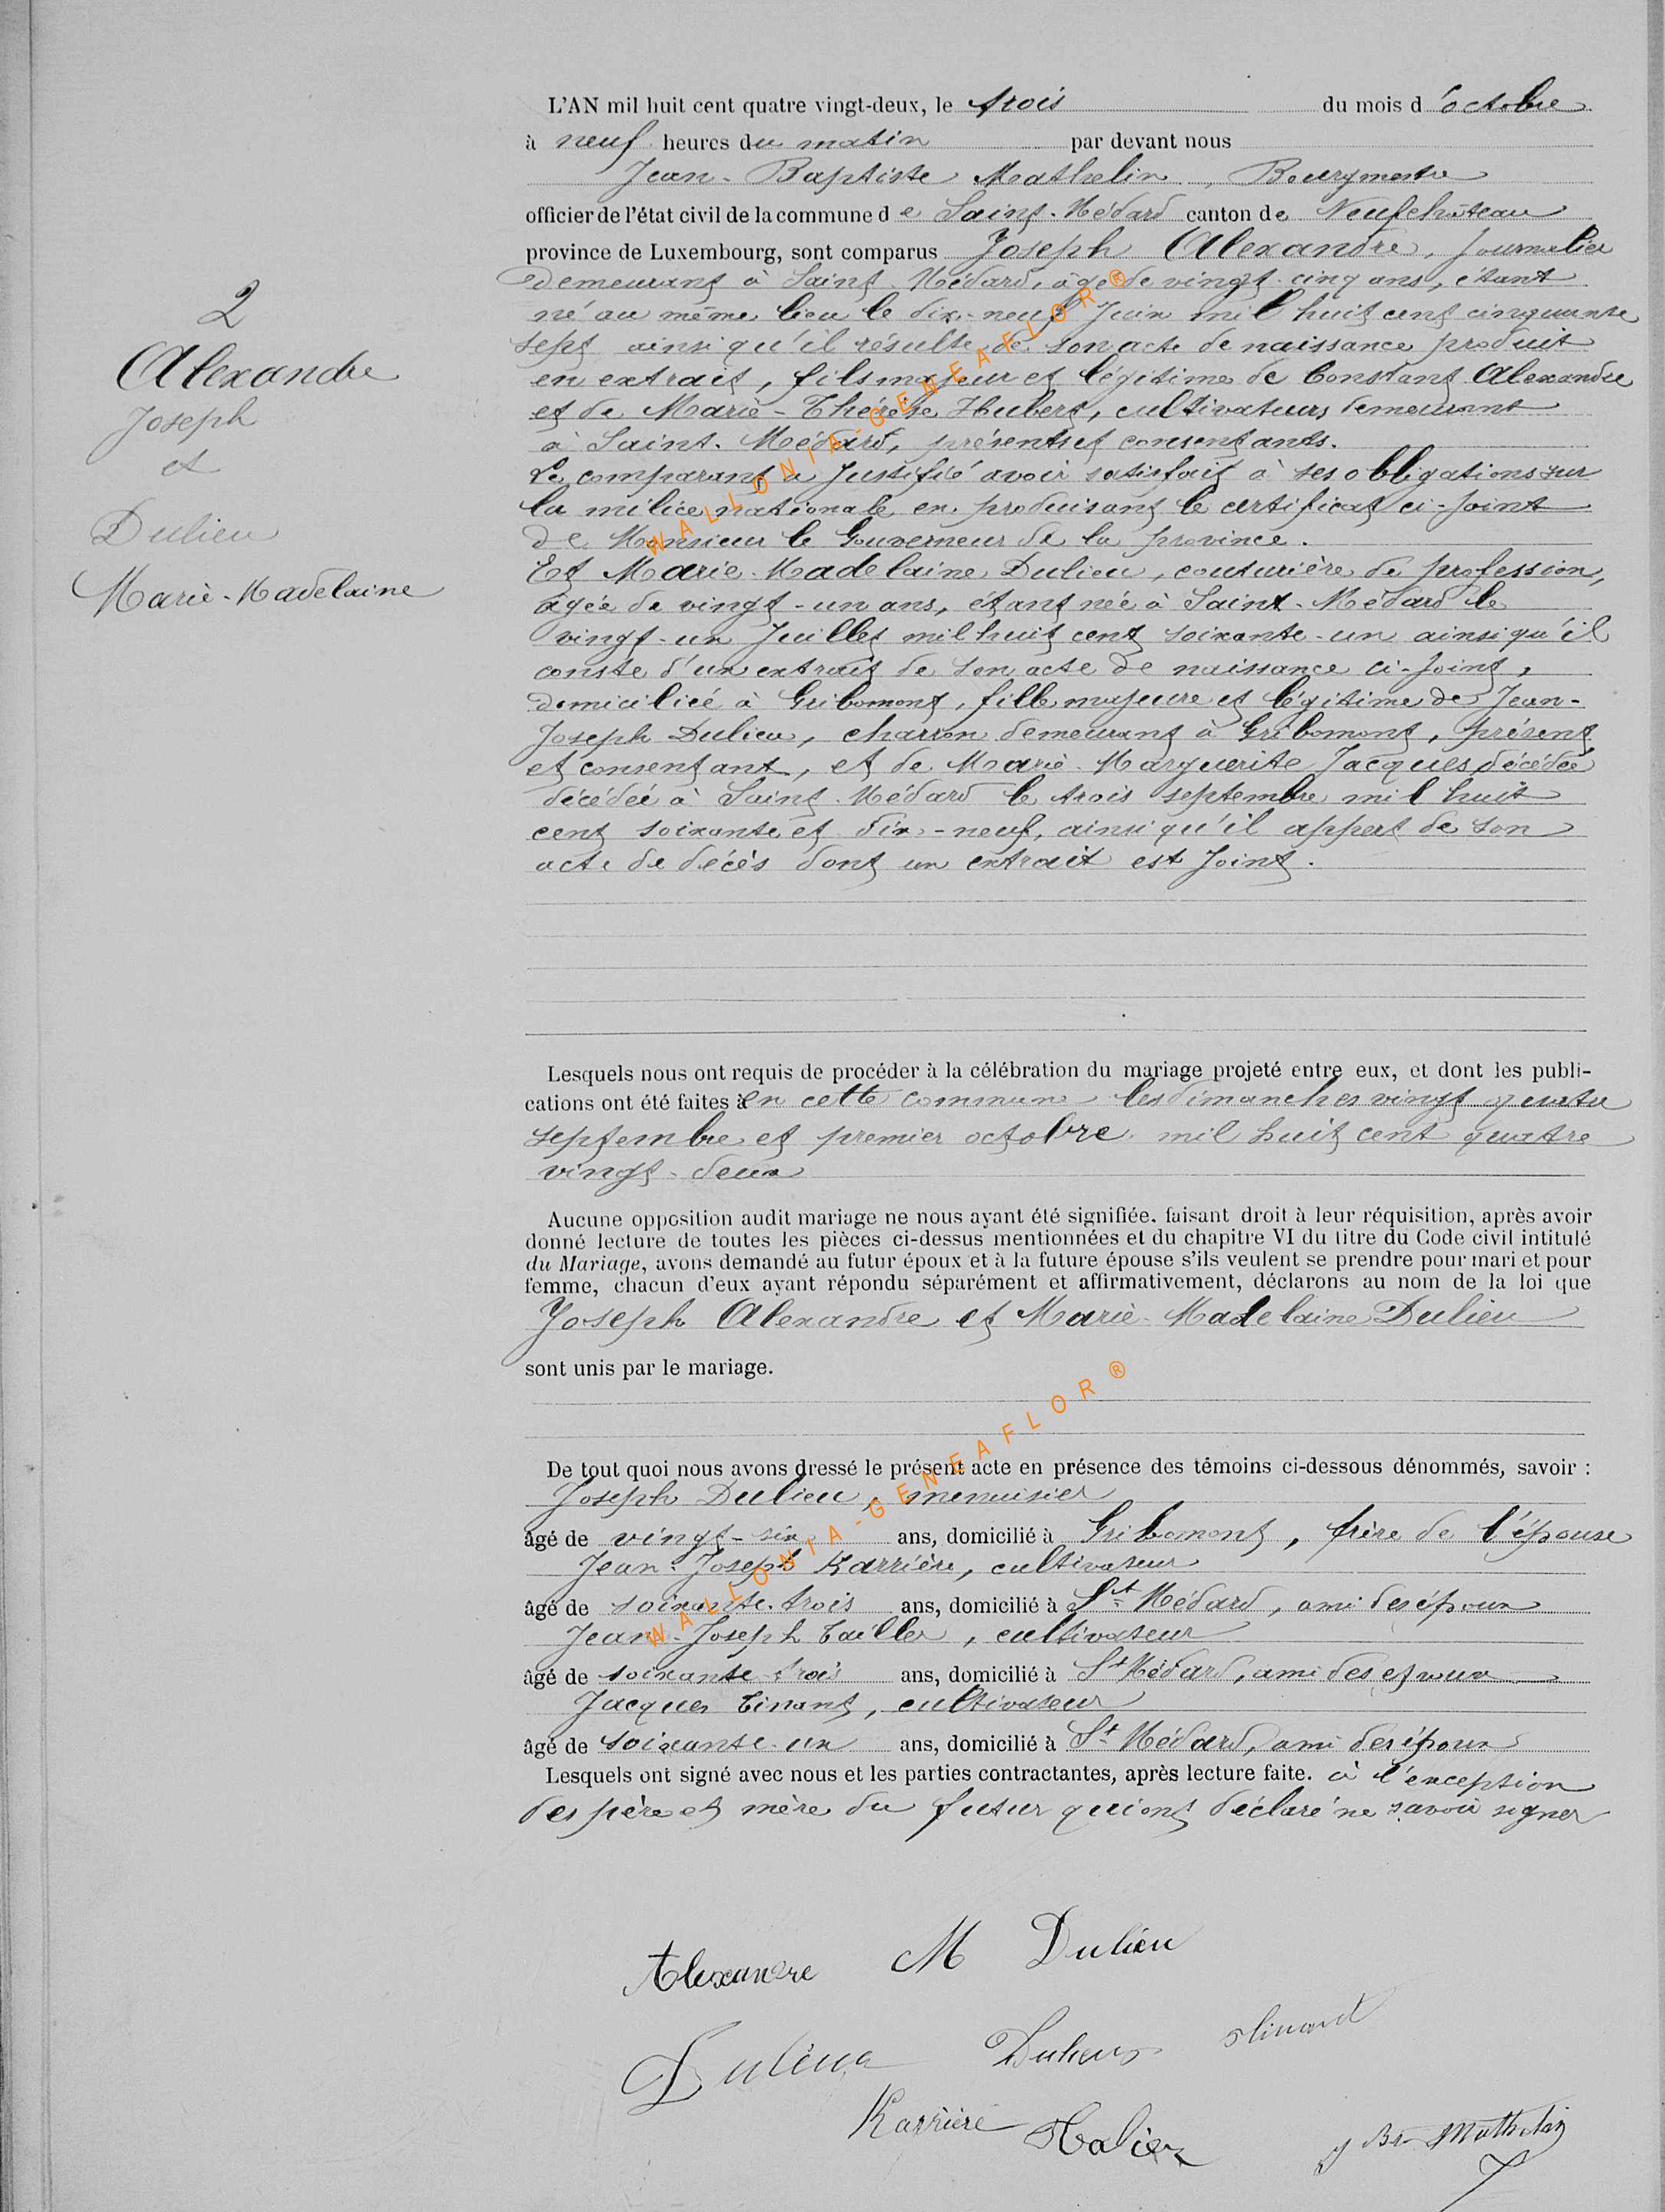 2
Alexandre
Joseph
et
Dulieu
Marie-Madelaine
L'AN mil huit cent quatre vingt-deux, le trois du mois d'octobre
à neuf heures du matin par devant nous
Jean-Baptiste Mathelin, Bourgmestre
officier de l'état civil de la commune de Saint-Médard canton de Neufchâteau
province de Luxembourg, sont comparus Joseph Alexandre, Journalier
demeurant à Saint-Médard, âgé de vingt-cinq ans, étant
né au même lieu le dix-neuf Juin mil huit cent cinquante
sept ainsi qu'il résulte de son acte de naissance produit
en extrait, fils majeur et légitime de Constant Alexandre
et de Marie-Thérèse Hubert, cultivateurs demeurant
à Saint-Médard, présents et consentants.
Le comparant a Justifié avoir satisfait à ses obligations sur
la milice nationale en produisant le certificat ci-joint
de Monsieur le Gouverneur de la province.
Et Marie-Madelaine Dulieu, couturière de profession,
agée de vingt-un ans, étant née à Saint-Médard le
vingt-un Juillet mil huit cent soixante-un ainsi qu'il
conste d'un extrait de son acte de naissance ci-joint,
domiciliée à Gribomont, fille majeure et légitime de Jean-
Joseph Dulieu, charron demeurant à Gribomont, présent
et consentant, et de Marie-Marguerite Jacques, décédée
décédée à Saint-Médard le trois septembre mil huit
cent soixante et dix-neuf, ainsi qu'il appert de son
acte de décès dont un extrait est Joint.
Lesquels nous ont requis de procéder à la célébration du mariage projeté entre eux, et dont les publi-
cations ont été faites à en cette commune les dimanches vingt quatre
septembre et premier octobre mil huit cent quatre
vingt-deux
Aucune opposition audit mariage ne nous ayant été signifiée. faisant droit à leur réquisition, après avoir
donné lecture de toutes les pièces ci-dessus mentionnées et du chapitre VI du titre du Code civil intitulé
du Mariage, avons demandé au futur époux et à la future épouse s'ils veulent se prendre pour mari et pour
femme, chacun d'eux ayant répondu séparément et affirmativement, déclarons au nom de la loi que
Joseph Alexandre et Marie-Madelaine Dulieu
sont unis par le mariage.
De tout quoi nous avons dressé le présent acte en présence des témoins ci-dessous dénommés, savoir :
Joseph Dulieu, menuisier
âgé de vingt-six ans, domicilié à Gribomont, frère de l'épouse
Jean-Joseph Karrière, cultivateur
âgé de soixante-trois ans, domicilié à St Médard, ami des époux
Jean-Joseph Tailler, cultivateur
âgé de soixante-trois ans, domicilié à St Médard, ami des époux
Jacques Tinant, cultivateur
âgé de soixante-un ans, domicilié à St Médard, ami des époux
Lesquels ont signé avec nous et les parties contractantes, après lecture faite. à l'exception
des père et mère du futur qui ont déclaré ne savoir signer
Alexandre M Dulieu
Dulieu Dulieu Tinant
Karrière Halier J Bte Mathelin
WALLONIA-GENEAFLOR®
WALLONIA-GENEAFLOR®